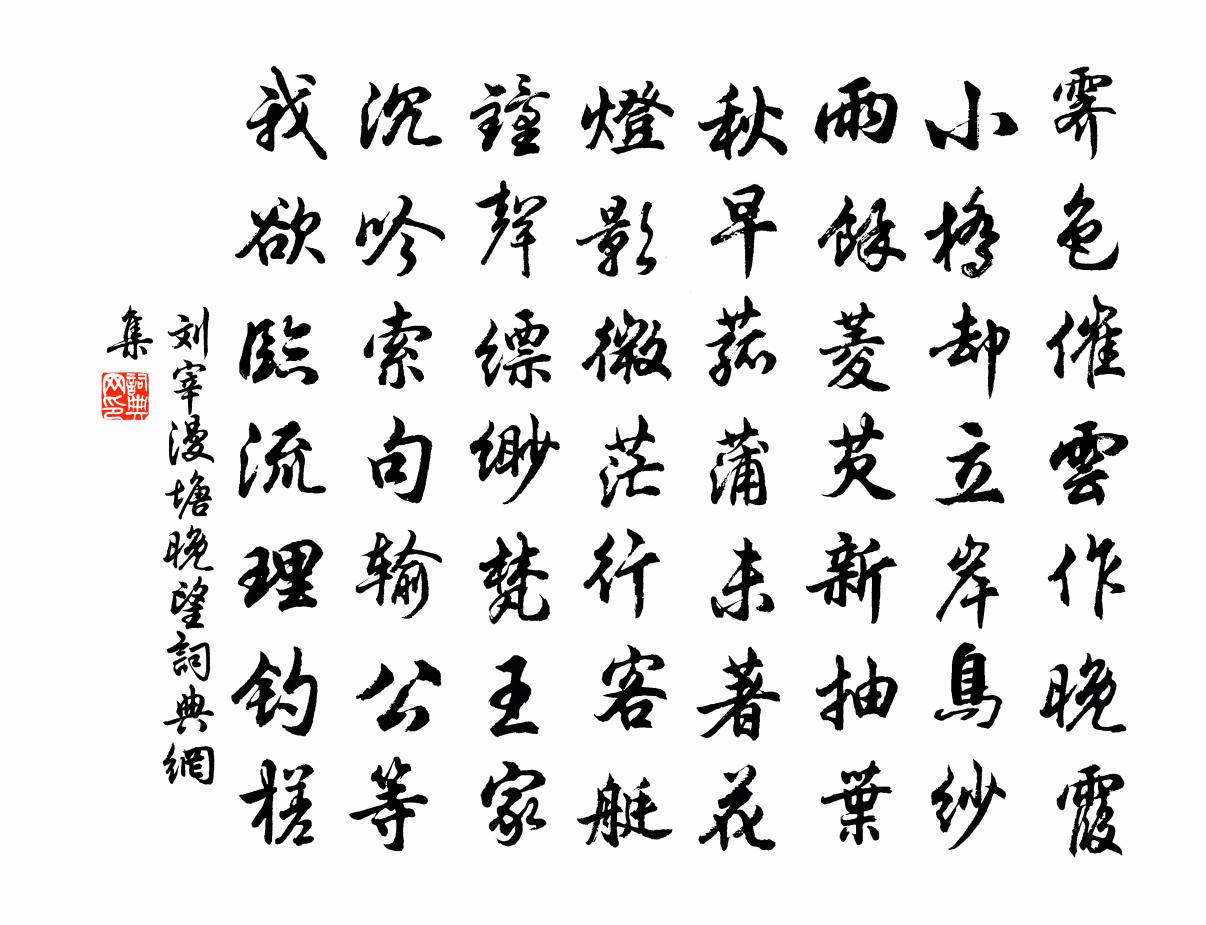 霽色催雲作晚霞
小橋却立岸烏紗
雨餘菱芡新抽葉
秋早菰蒲未著花
燈影微茫行客艇
鐘聲縹緲梵王家
沉吟索句輸公等
我欲臨流理釣槎
刘宰漫塘晚望詞典網
集
詞典网印